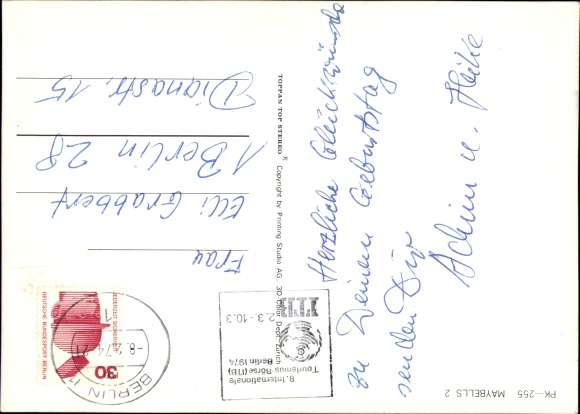 Herzliche Glückwünsche
zu Deinem Geburtstag
senden Dir
Achim u. Heike
Frau
Elli Grabbert
1 Berlin 28
Dianastr. 15
TOPPAN TOP STEREO ® Copyright by Printing Studio AG 3D Color Dept. Zürich
PK—255 MAYBELLS 2
8. Internationale
Tourismus-Börse (ITB)
Berlin 1974
2.3.-10.3
BERLIN 11
-8.2.74-21
JEDERZEIT SICHERHEIT
DEUTSCHE BUNDESPOST BERLIN
30